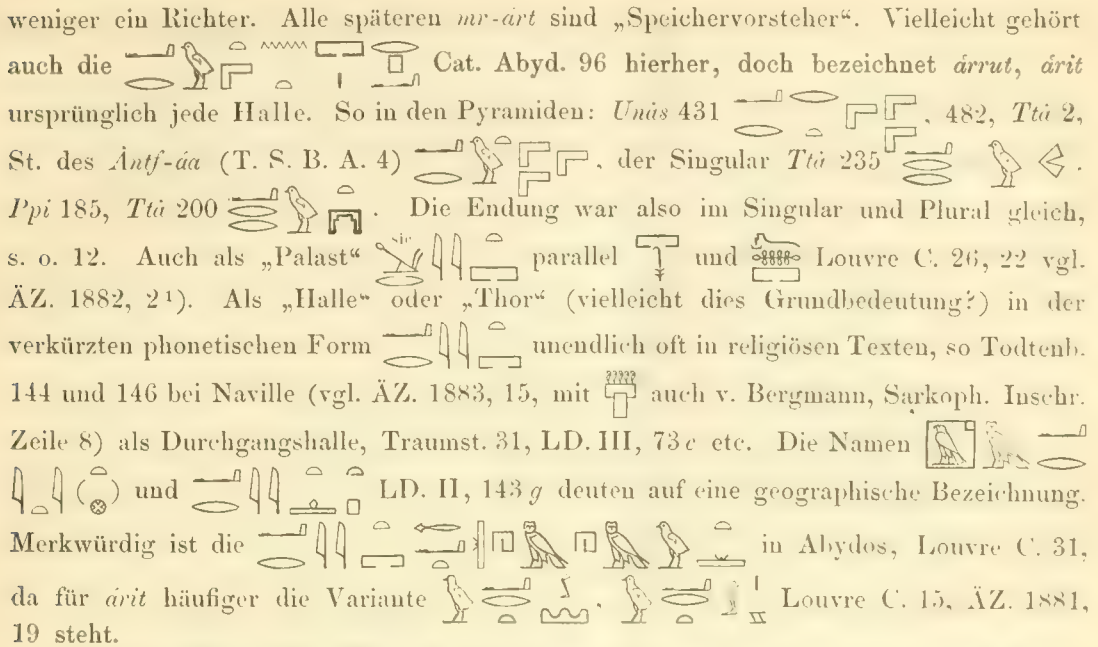 weniger ein Richter. Alle späteren mr-árt sind „Speichervorsteher“. Vielleicht gehört
auch die Cat. Abyd. 96 hierher, doch bezeichnet árrut, árit
ursprünglich jede Halle. So in den Pyramiden: Unás 431 . 482, Ttá 2,
St. des Ántf-áa (T. S. B. A. 4) . der Singular Ttá 235 .
Ppi 185, Ttá 200 . Die Endung war also im Singular und Plural gleich,
s. o. 12. Auch als „Palast“ sic parallel und Louvre C. 26, 22 vgl.
ÄZ. 1882, 2¹). Als „Halle“ oder „Thor“ (vielleicht dies Grundbedeutung?) in der
verkürzten phonetischen Form unendlich oft in religiösen Texten, so Todtenb.
144 und 146 bei Naville (vgl. ÄZ. 1883, 15, mit auch v. Bergmann, Sarkoph. Inschr.
Zeile 8) als Durchgangshalle, Traumst. 31, LD. III, 73 c etc. Die Namen
( ) und LD. II, 143 g deuten auf eine geographische Bezeichnung.
Merkwürdig ist die in Abydos, Louvre C. 31,
da für árit häufiger die Variante . Louvre C. 15, ÄZ. 1881,
19 steht.